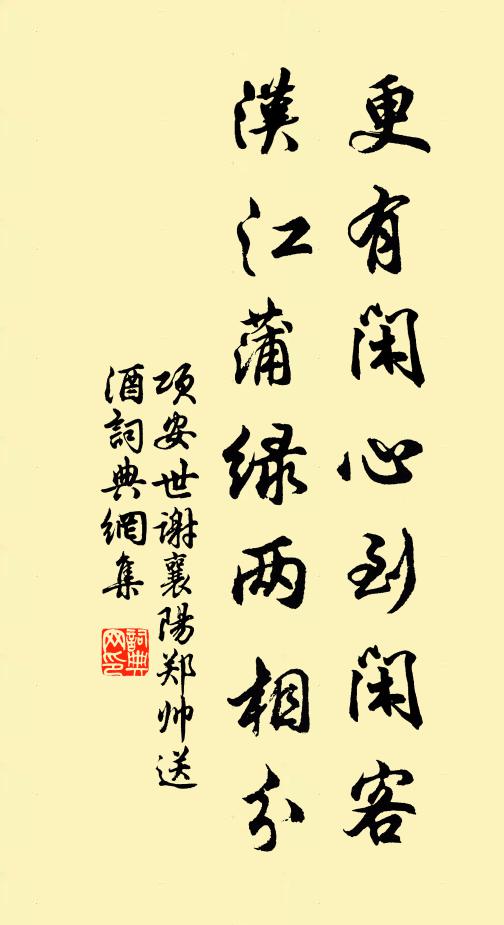 更有闲心到闲客
漢江蒲緑两相分
项安世谢襄陽郑帅送
酒詞典網集
詞典
网印